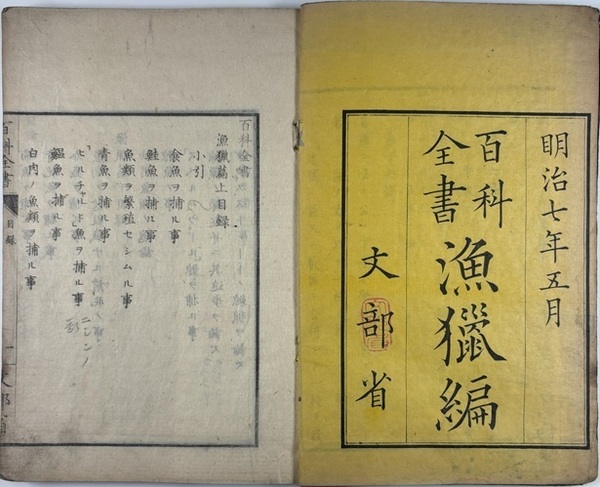 明治七年五月
百科全書
漁獵編
文部省
百科全書
漁獵篇上目録
小引
食魚ヲ捕ル事
鮭魚ヲ捕ル事
魚類ヲ繁殖セシムル事
青魚ヲ捕ル事
ヒルチャルド魚ヲ捕ル事
ニシンノ
鰮魚ヲ捕ル事
白肉ノ魚類ヲ捕ル事
百科全書
目録
一
文部省